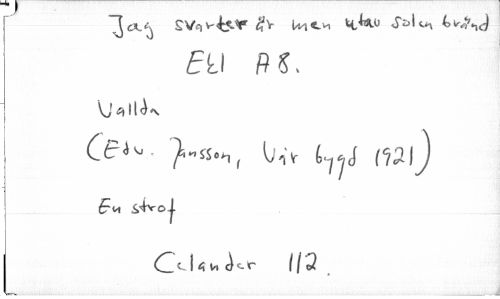 Jag svarter är men utav solen bränd
EEl A8.
Vallda
(Edv. Jansson, Vår bygd 1921)
En strof
Celander 112.